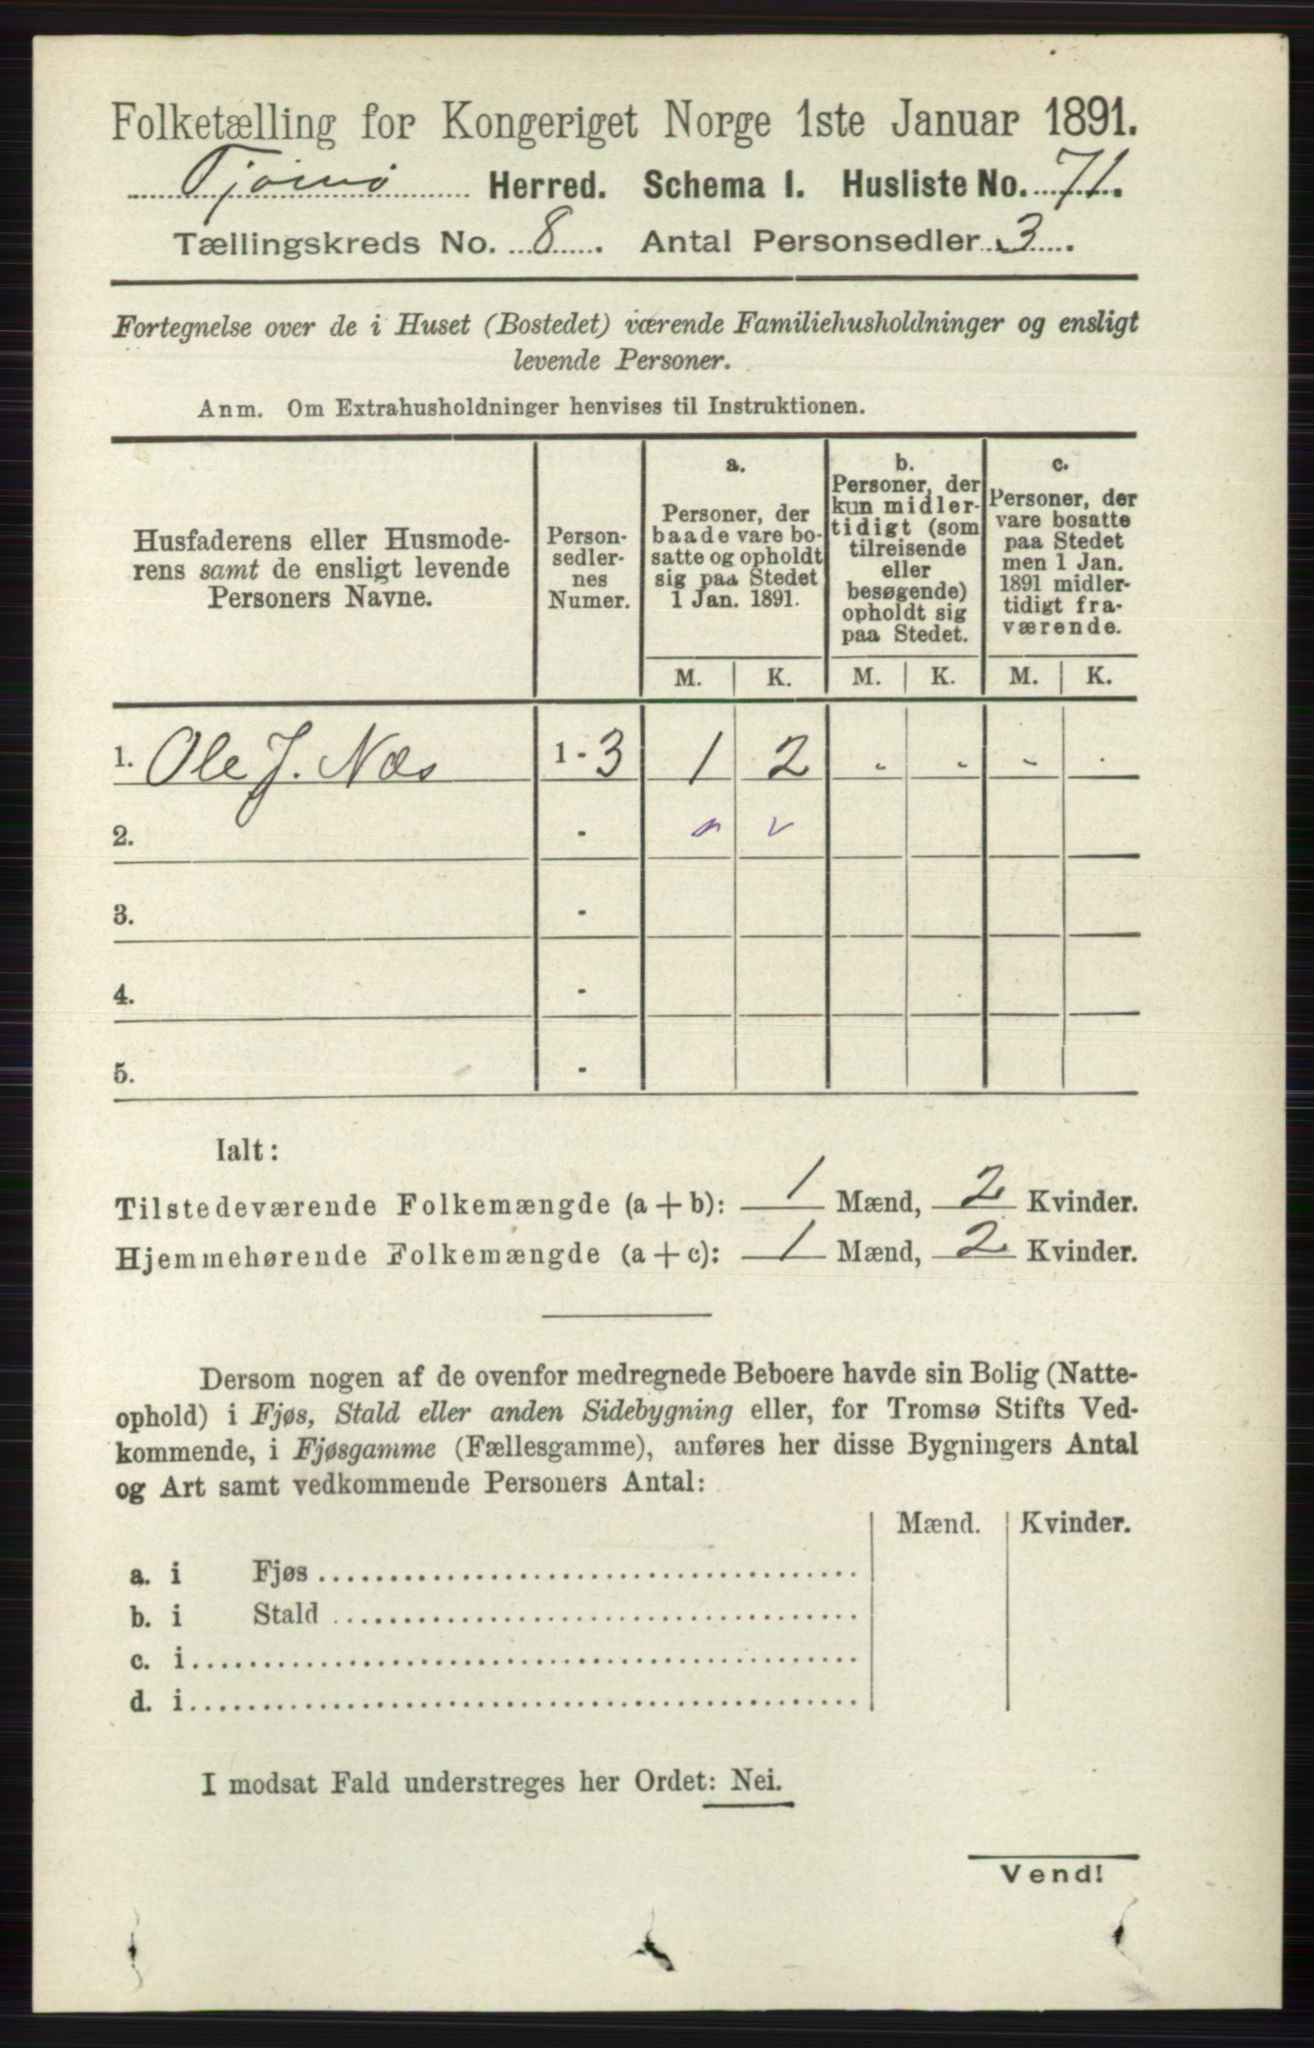 Folketælling for Kongeriget Norge 1ste Januar 1891.
Tjømø Herred. Schema 1. Husliste No. 71.
Tællingskreds No. 8. Antal Personsedler 3.
Fortegnelse over de i Huset (Bostedet) værende Familiehusholdninger og ensligt
levende Personer.
Anm. Om Extrahusholdninger henvises til Instruktionen.
Husfaderens eller Husmode-
rens samt de ensligt levende
Personers Navne.
Person-
sedler-
nes
Numer.
a.
Personer, der
baade vare bo-
satte og opholdt
sig paa Stedet
1 Jan. 1891.
b.
Personer, der
kun midler-
tidigt (som
tilreisende
eller
besøgende)
opholdt sig
paa Stedet.
c.
Personer, der
vare bosatte
paa Stedet
men 1 Jan.
1891 midler-
tidigt fra-
værende.
M. K. M. K. M. K.
1. Ole J. Næs 1 - 3 1 2 - - - -
2. -
3. -
4. -
5. -
Ialt:
Tilstedeværende Folkemængde (a + b): 1 Mænd, 2 Kvinder.
Hjemmehørende Folkemængde (a + c): 1 Mænd, 2 Kvinder.
Dersom nogen af de ovenfor medregnede Beboere havde sin Bolig (Natte-
ophold) i Fjøs, Stald eller anden Sidebygning eller, for Tromsø Stifts Ved-
kommende, i Fjøsgamme (Fællesgamme), anføres her disse Bygningers Antal
og Art samt vedkommende Personers Antal:
Mænd. Kvinder.
a. i Fjøs
b. i Stald
c. i
d. i
I modsat Fald understreges her Ordet: Nei.
Vend!